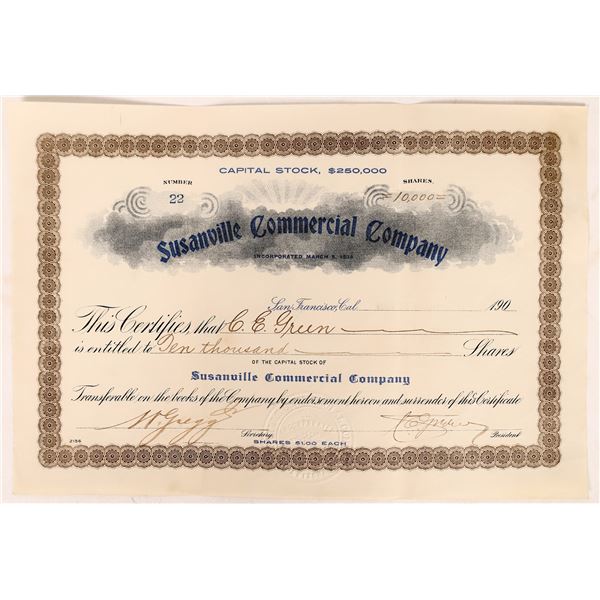 CAPITAL STOCK, $250,000
NUMBER SHARES
22 =10,000=
Susanville Commercial Company
INCORPORATED MARCH 5,
San Francisco, Cal. 190
This Certifies, that C. E. Green
is entitled to Ten thousand Shares
OF THE CAPITAL STOCK OF
Susanville Commercial Company
Transferable on the books of the Company by endorsement hereon and surrender of this Certificate
W Gregg Jr
Secretary. President
SHARES $1.00 EACH
2156